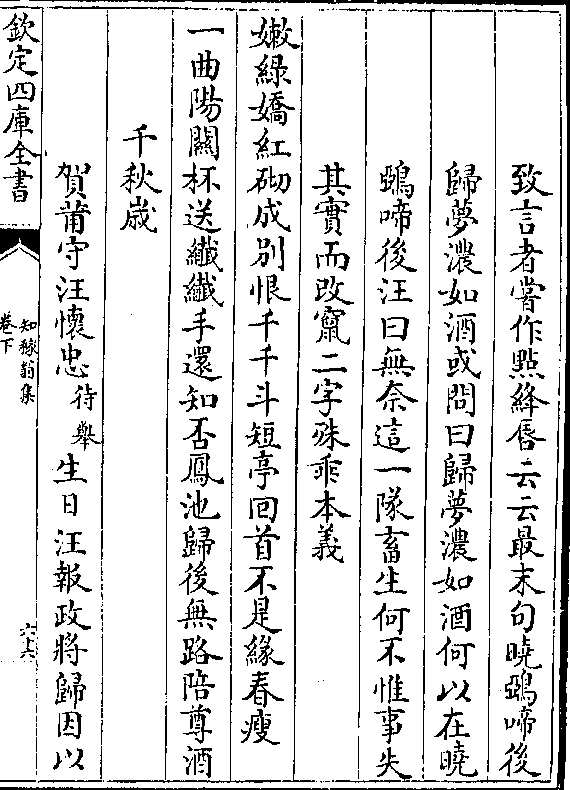 致言者嘗作點絳唇云云最末句曉鵶啼後
歸夢濃如酒或問曰歸夢濃如酒何以在曉
鵶啼後汪曰無奈這一隊畜生何不惟事失
其實而改竄二字殊乖本義
嫩綠嬌紅砌成別恨千千斗短亭回首不是緣春瘦
一曲陽關杯送纖纖手還知否鳳池歸後無路陪尊酒
千秋歲
賀莆守汪懷忠待舉生日汪報政將歸因以
欽定四庫全書
知稼翁集
卷下